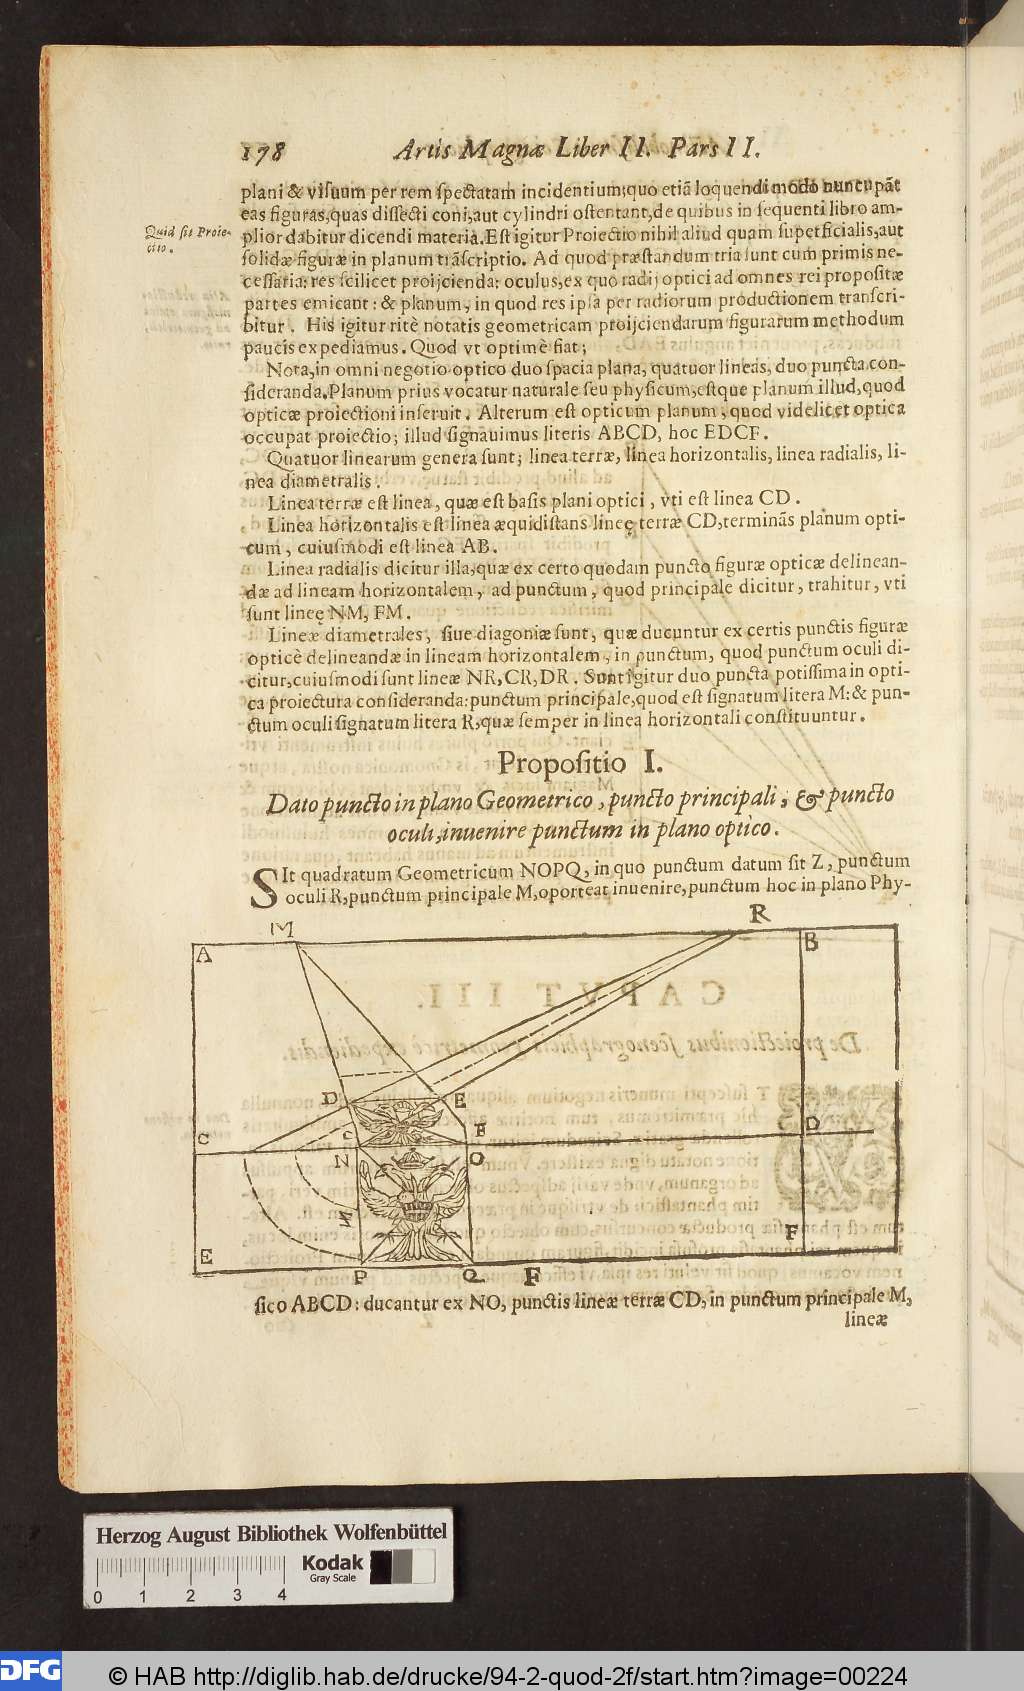 178 Artis Magnæ Liber II. Pars II.
plani & visuum per rem spectatam incidentium; quo etiã loquendi modo nuncupãt
eas figuras, quas dissecti coni, aut cylindri ostentant, de quibus in sequenti libro am-
plior dabitur dicendi materia. Est igitur Proiectio nihil aliud quam superficialis, aut
Quid sit Proie-
ctio.
solidæ figuræ in planum trãscriptio. Ad quod præstandum tria sunt cum primis ne-
cessaria: res scilicet proijcienda: oculus, ex quo radij optici ad omnes rei propositæ
partes emicant: & planum, in quod res ipsa per radiorum productionem transcri-
bitur. His igitur ritè notatis geometricam proijciendarum figurarum methodum
paucis expediamus. Quod vt optimè fiat;
Nota, in omni negotio optico duo spacia plana, quatuor lineas, duo puncta con-
sideranda. Planum prius vocatur naturale seu physicum, estque planum illud, quod
opticæ proiectioni inseruit. Alterum est opticum planum, quod videlicet optica
occupat proiectio; illud signauimus literis ABCD, hoc EDCF.
Quatuor linearum genera sunt; linea terræ, linea horizontalis, linea radialis, li-
nea diametralis.
Linea terræ est linea, quæ est basis plani optici, vti est linea CD.
Linea horizontalis est linea æquidistans lineę terræ CD, terminãs planum opti-
cum, cuiusmodi est linea AB.
Linea radialis dicitur illa, quæ ex certo quodam puncto figuræ opticæ delinean-
dæ ad lineam horizontalem, ad punctum, quod principale dicitur, trahitur, vti
sunt lineę NM, FM.
Lineæ diametrales, siue diagoniæ sunt, quæ ducuntur ex certis punctis figuræ
opticè delineandæ in lineam horizontalem, in punctum, quod punctum oculi di-
citur, cuiusmodi sunt lineæ NR, CR, DR. Sunt igitur duo puncta potissima in opti-
ca proiectura consideranda: punctum principale, quod est signatum litera M: & pun-
ctum oculi signatum litera R, quæ semper in linea horizontali constituuntur.
Propositio I.
Dato puncto in plano Geometrico, puncto principali, & puncto
oculi, inuenire punctum in plano optico.
SIt quadratum Geometricum NOPQ, in quo punctum datum sit Z, punctum
oculi R, punctum principale M, oporteat inuenire, punctum hoc in plano Phy-
M R
A B
D E
C C F D
N O
N
E F
P Q F
sico ABCD: ducantur ex NO, punctis lineæ terræ CD, in punctum principale M,
lineæ
Herzog August Bibliothek Wolfenbüttel
Kodak
Gray Scale
0 1 2 3 4
DFG © HAB http://diglib.hab.de/drucke/94-2-quod-2f/start.htm?image=00224